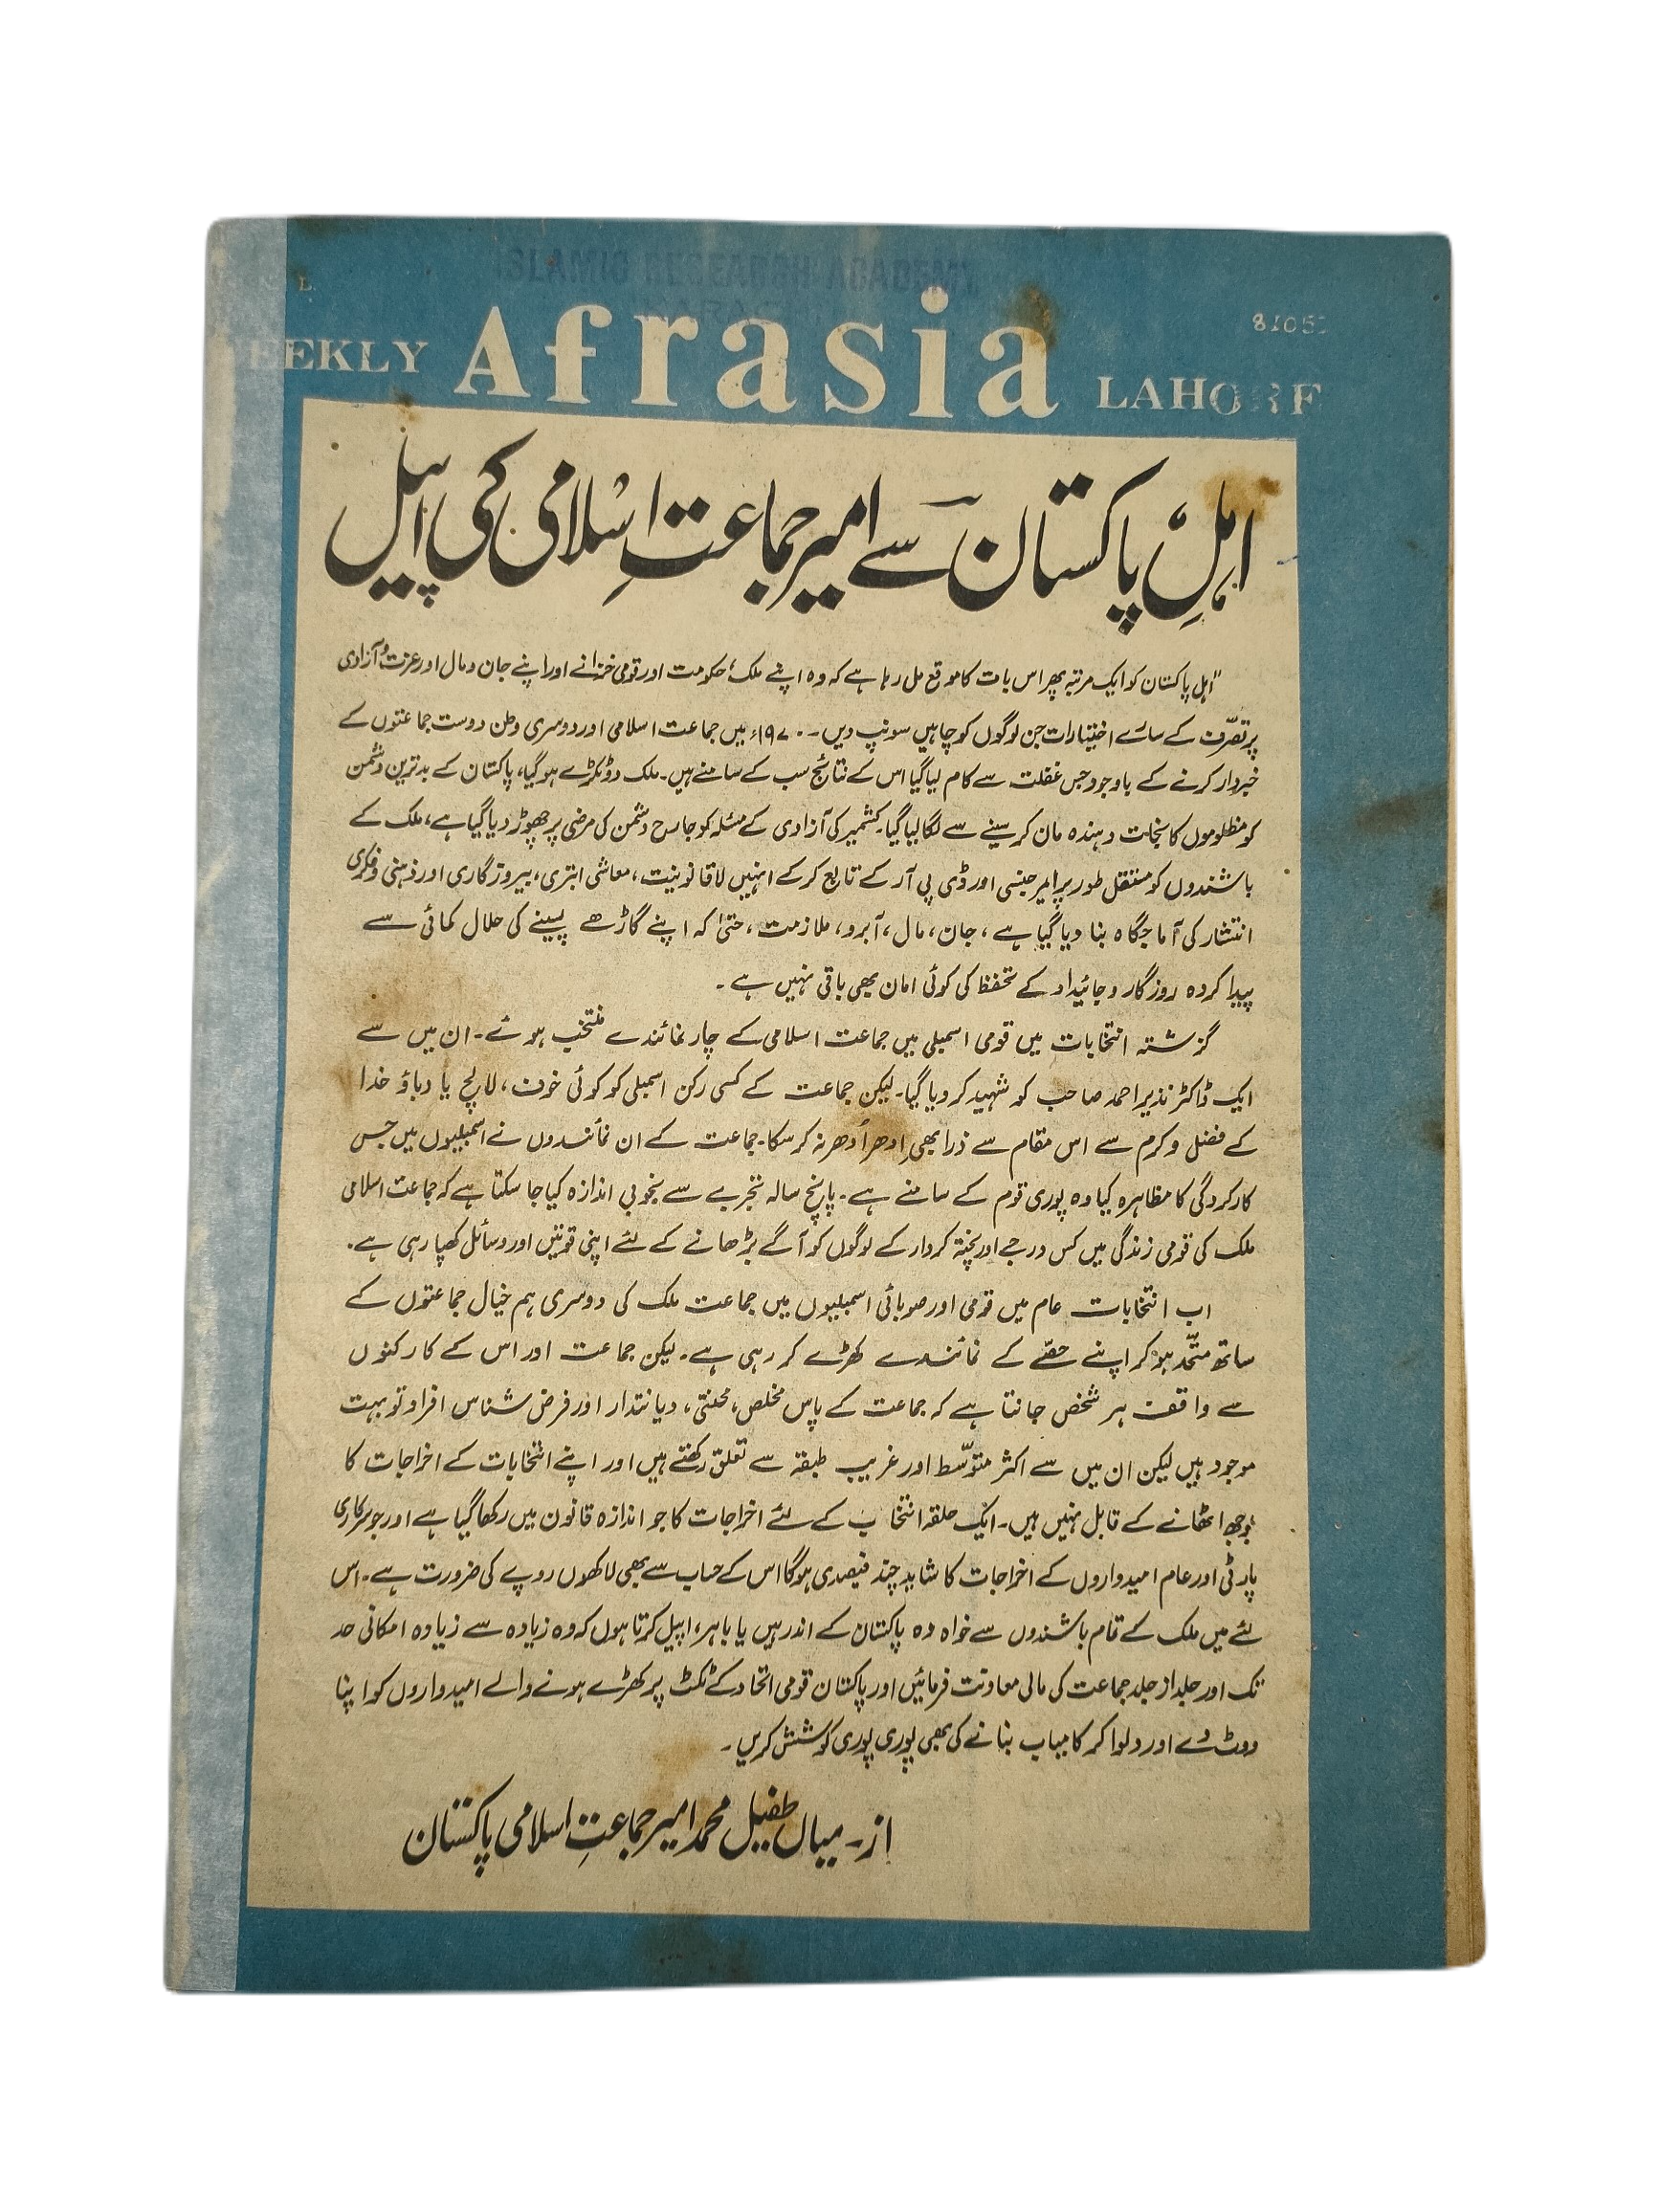 ISLAMIC RESEARCH ACADEMY
L.
8105
EEKLY Afrasia LAHORE
اہلِ پاکستان سے امیر جماعتِ اسلامی کی اپیل
"اہل پاکستان کو ایک مرتبہ پھر اس بات کا موقع مل رہا ہے کہ وہ اپنے ملک، حکومت اور قومی خزانے اور اپنے جان و مال اور عزت و آزادی
پر تصرّف کے سارے اختیارات جن لوگوں کو چاہیں سونپ دیں۔ ۱۹۷۰ء میں جماعت اسلامی اور دوسری وطن دوست جماعتوں کے
خبردار کرنے کے باوجود جس غفلت سے کام لیا گیا اس کے نتائج سب کے سامنے ہیں۔ ملک دو ٹکڑے ہو گیا، پاکستان کے بدترین دشمن
کو مظلوموں کا نجات دہندہ مان کر سینے سے لگا لیا گیا۔ کشمیر کی آزادی کے مسئلہ کو جارح دشمن کی مرضی پر چھوڑ دیا گیا ہے، ملک کے
باشندوں کو مستقل طور پر ایمرجنسی اور ڈی پی آر کے تابع کر کے انہیں لاقانونیت، معاشی ابتری، بیروزگاری اور ذہنی و فکری
انتشار کی آماجگاہ بنا دیا گیا ہے، جان، مال، آبرو، ملازمت، حتیٰ کہ اپنے گاڑھے پسینے کی حلال کمائی سے
پیدا کردہ روزگار و جائیداد کے تحفظ کی کوئی امان بھی باقی نہیں ہے۔
گزشتہ انتخابات میں قومی اسمبلی میں جماعت اسلامی کے چار نمائندے منتخب ہوئے۔ ان میں سے
ایک ڈاکٹر نذیر احمد صاحب کو شہید کر دیا گیا۔ لیکن جماعت کے کسی رکن اسمبلی کو کوئی خوف، لالچ یا دباؤ خدا
کے فضل و کرم سے اس مقام سے ذرا بھی اِدھر اُدھر نہ کر سکا۔ جماعت کے ان نمائندوں نے اسمبلیوں میں جس
کارکردگی کا مظاہرہ کیا وہ پوری قوم کے سامنے ہے۔ پانچ سالہ تجربے سے بخوبی اندازہ کیا جا سکتا ہے کہ جماعت اسلامی
ملک کی قومی زندگی میں کس درجے اور پختہ کردار کے لوگوں کو آگے بڑھانے کے لئے اپنی قوتیں اور وسائل کھپا رہی ہے۔
اب انتخابات عام میں قومی اور صوبائی اسمبلیوں میں جماعت ملک کی دوسری ہم خیال جماعتوں کے
ساتھ متّحد ہو کر اپنے حصّے کے نمائندے کھڑے کر رہی ہے۔ لیکن جماعت اور اس کے کارکنوں
سے واقف ہر شخص جانتا ہے کہ جماعت کے پاس مخلص، محنتی، دیانتدار اور فرض شناس افراد تو بہت
موجود ہیں لیکن ان میں سے اکثر متوسّط اور غریب طبقہ سے تعلق رکھتے ہیں اور اپنے انتخابات کے اخراجات کا
بوجھ اٹھانے کے قابل نہیں ہیں۔ ایک حلقہ انتخاب کے لئے اخراجات کا جو اندازہ قانون میں رکھا گیا ہے اور جو سرکاری
پارٹی اور عام امیدواروں کے اخراجات کا شاید چند فیصدی ہو گا اس کے حساب سے بھی لاکھوں روپے کی ضرورت ہے۔ اس
لئے میں ملک کے تمام باشندوں سے خواہ وہ پاکستان کے اندر ہیں یا باہر، اپیل کرتا ہوں کہ وہ زیادہ سے زیادہ امکانی حد
تک اور جلد از جلد جماعت کی مالی معاونت فرمائیں اور پاکستان قومی اتحاد کے ٹکٹ پر کھڑے ہونے والے امیدواروں کو اپنا
ووٹ دے اور دلوا کر کامیاب بنانے کی بھی پوری پوری کوشش کریں۔
از۔ میاں طفیل محمد امیر جماعتِ اسلامی پاکستان